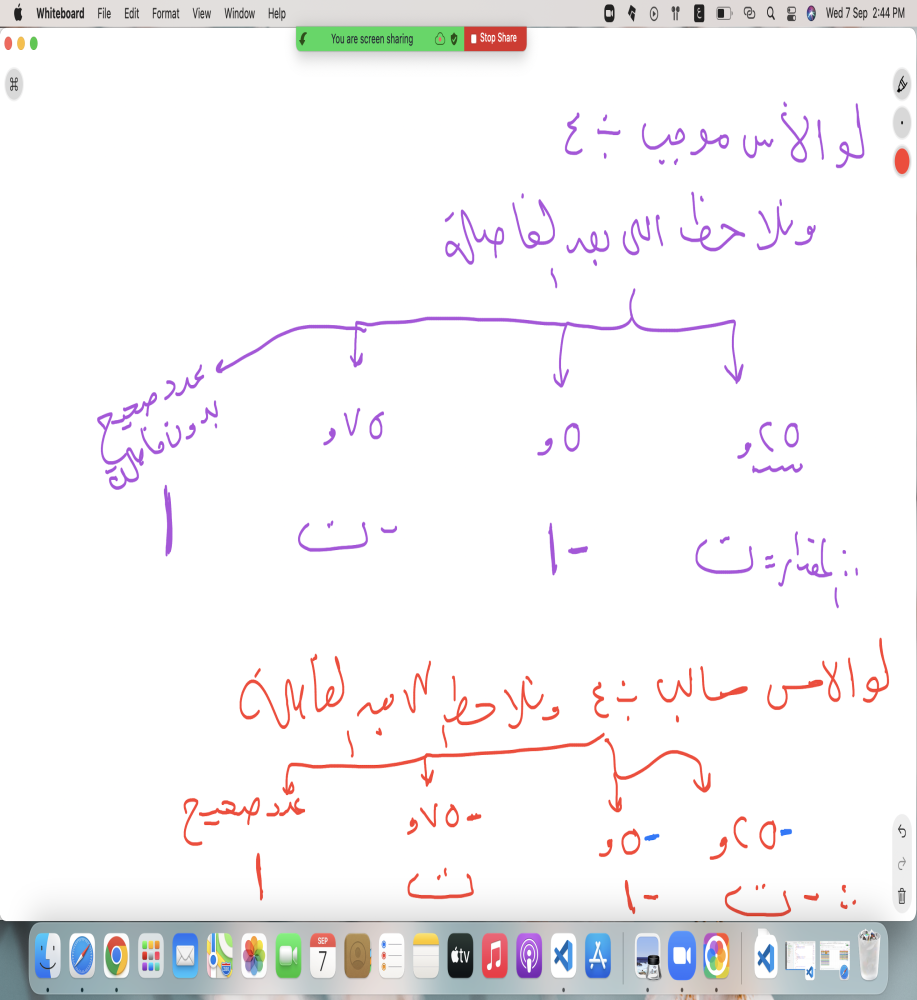 Whiteboard File Edit Format View Window Help Wed 7 Sep 2:44 PM
You are screen sharing Stop Share
لو الأس موجب ÷ ٤
ونلاحظ اللى بعد الفاصلة
٢٥و ٥و ٧٥و عدد صحيح
بدون فاصلة
∴ المقدار = ت -١ -ت ١
لو الاس سالب ÷ ٤ ونلاحظ الا بعد الفاصلة
-٢٥و -٥و -٧٥و عدد صحيح
∴ -ت -١ ت ١
SEP
7
tv